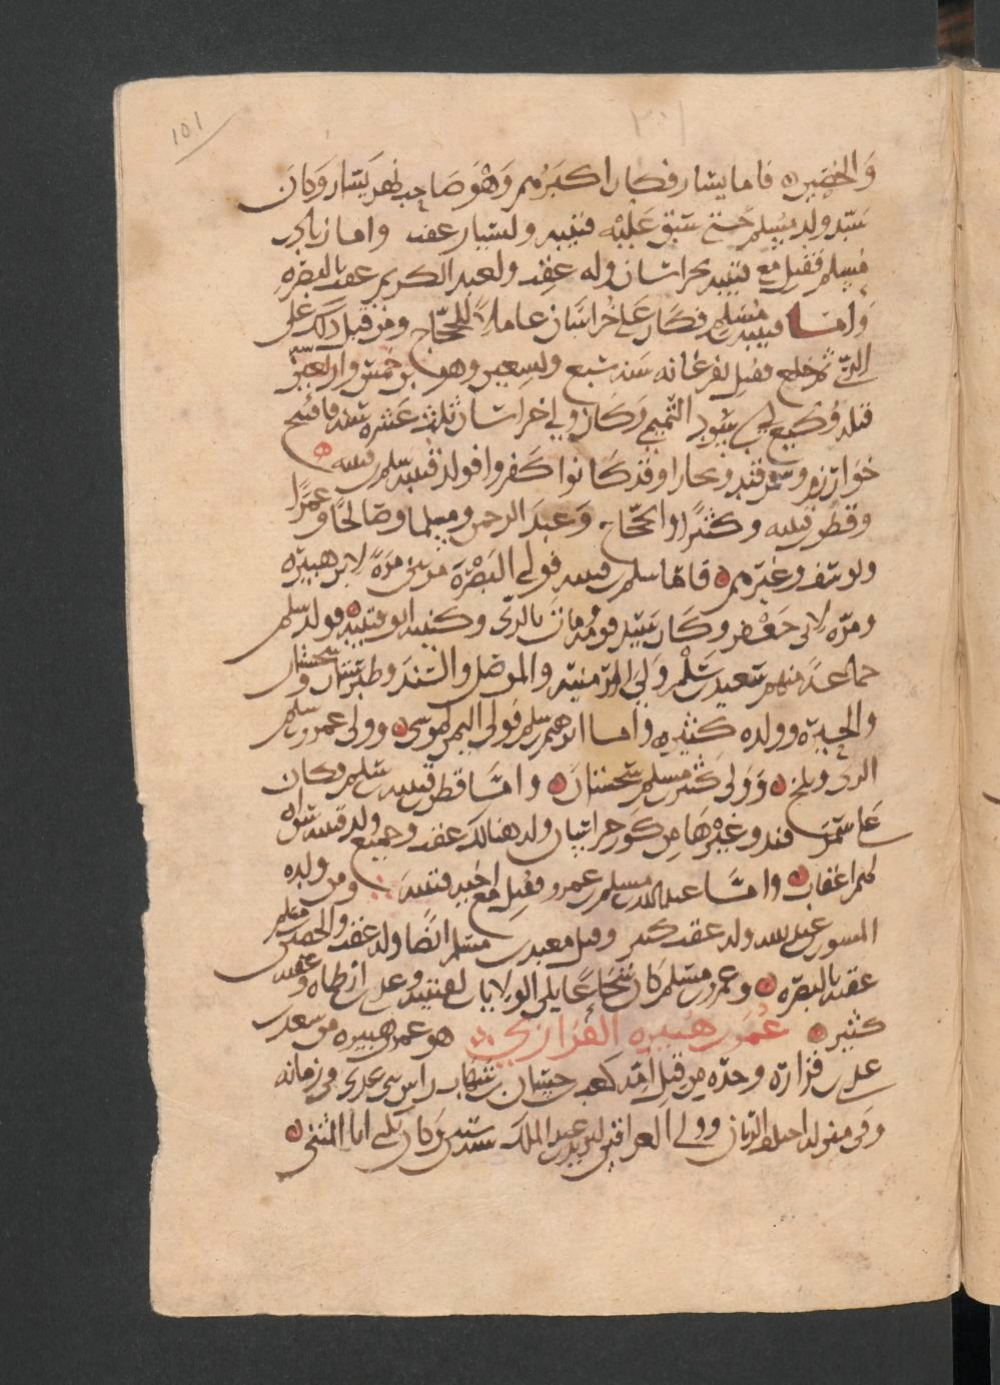 101
والحصين ٥ فاما يسار فكان اكبرهم وهو صاحب نهر يسار وكان
سيد ولد مسلم حتى سبق عليه قتيبه وليسار عقب واما زياد بن
مسلم فقتل مع قتيبه بخراسان وله عقب ولعبد الكريم عقب بالبصره
واما قتيبه بن مسلم فكان على خراسان عاملا للحجاج ومن قبل ذلك على
الري ثم خلع فقتل بفرغانه سنه سبع وتسعين وهو ابن خمس واربعين سنه
قتله وكيع بن ابي سود التميمي وكان ولي خراسان ثلث عشره سنه فافتتح
خوارزم وسمرقند وبخارا وقد كانوا كفروا فولد قتيبه سلم بن قتيبه ٥
وقطن بن قتيبه وكثيرا والحجاج وعبد الرحمن ومسلما وصالحا وعمرا
ويوسف وغيرهم ٥ فاما سلم بن قتيبه فولي البصرة مرتين مرة لابن هبيره
ومره لابي جعفر وكان سيد قومه ومات بالري وكنيته ابو قتيبه فولد سلم
جماعة منهم سعيد بن سلم ولي ارمينيه والموصل والسند وطبرستان وسجستان
والجزيره وولده كثير ٥ واما ابرهيم بن سلم فولي اليمن لموسى ٥ وولي عمرو بن سلم
الري وبلخ ٥ وولي كثير بن سلم سجستان ٥ واما قطن بن قتيبه بن مسلم فكان
على سمرقند وغيرها من كور خراسان وله هنالك عقب وجميع ولد قتيبه سواه
لهم اعقاب ٥ واما عبد الله بن مسلم بن عمرو فقتل مع اخيه قتيبه ومن ولده
المسور بن عبد الله وله عقب كثير وقتل معبد بن مسلم ايضا وله عقب والحصين بن مسلم
عقبه بالبصره ٥ وعمرو بن مسلم كان شجاعا يلي الولايات لقتيبه
كثير ٥ عمر بن هبيره الفزاري هو عمر بن هبيره من سعد بن
عدي بن فزارة وجده من قبل امه كعب بن حسان بن شهاب راس بني عدي في زمانه
وولي العراقين ليزيد بن عبد الملك ست سنين وكان يكنى ابا المثنى ٥